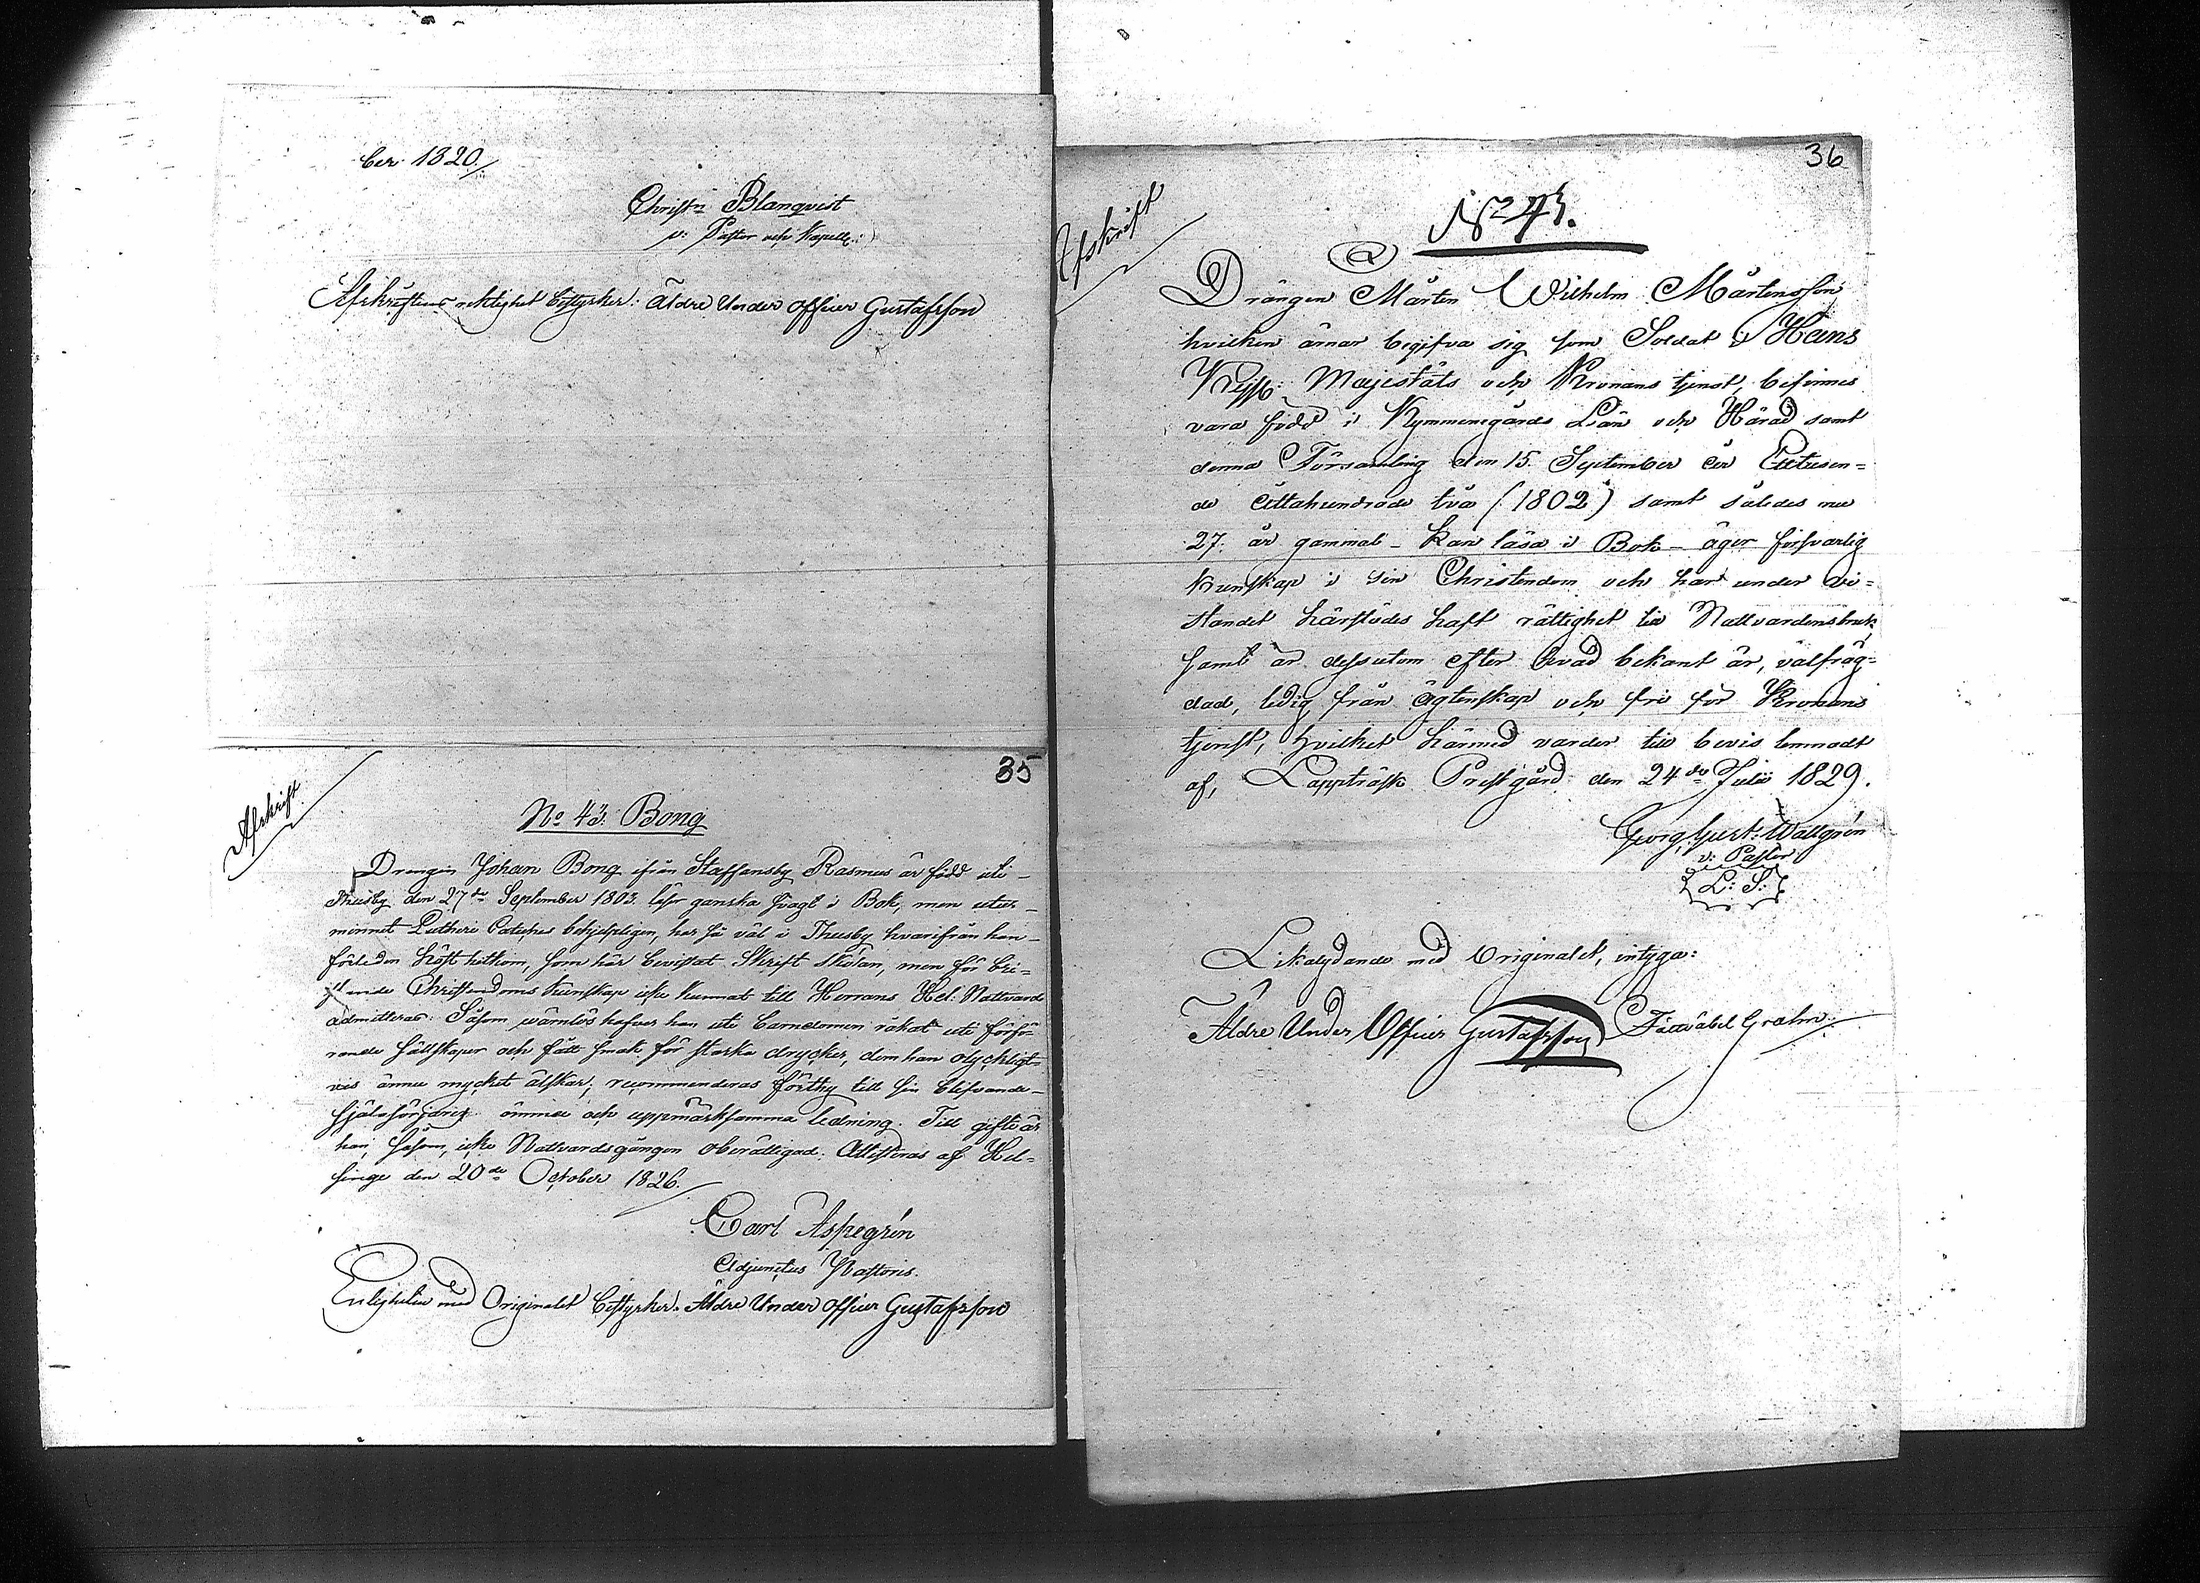 ber 1820.
Christn Blanqvist
v: Pastor och Kapell:
Afskriftens rektighet bestyrker: Äldre Under Officer Gustafsson
35
Afskrift
No 43. Bong
Drengen Johan Bong ifrån Staffansby Rasmus är född uti
Thusby den 27de September 1803. läser ganska svagt i Bok, men utur
minnet Lutheri Cateches behjelpligen, har så väl i Thusby hvarifrån han
förleden höst hitkom, som här bevistat Skrift skolan, men för bri=
stande Christendoms kunskap icke kunnat till Herrans Hel. Nattvard
admitteras. Såsom wärnlös hafver han uti barndomen råkat uti förfö=
rande sällskaper och fått smak för starka drycker, dem han olyckligt=
vis ännu mycket älskar, recommenderas förthy till sin blifvande
själasörjares ömma och uppmärksamma ledning. Till gifte är
han, såsom icke Nattvardsgången oberättigad. Attesteras af Hel=
singe den 20de October 1826.
Carl Aspegrén
Adjunctus Pastoris.
Enligheten med Originalet bestyrker. Äldre Under Officer Gustafsson
36
Afskrift
No 43.
Drängen Mårten Wilhelm Mårtensson
hvilken ärnar begifva sig som Soldat i Hans
Kejss: Majestäts och Kronans tjenst, befinnes
vara född i Kymmenegårds Län och Härad samt
denna Församling den 15. September år Ettusen=
de Åttahundrade två (1802) samt således nu
27. år gammal - kan läsa i Bok - äger försvarlig
kunskap i sin Christendom och har under vi=
standet härstädes haft rättighet till Nattvardens bruk,
samt är dessutom efter hvad bekant är, välfräg=
dad, ledig från ägtenskap och fri för Kronans
tjenst, hvilket härmed varder till bevis lemnadt
af, Lappträsk Prestgård den 24de Julii 1829.
Georg Gust: Wallgrén
v: Pastor
L: S:
Likalydande med Originalet, intyga:
Äldre Under Officer Gustafsson Fältväbel Grahn